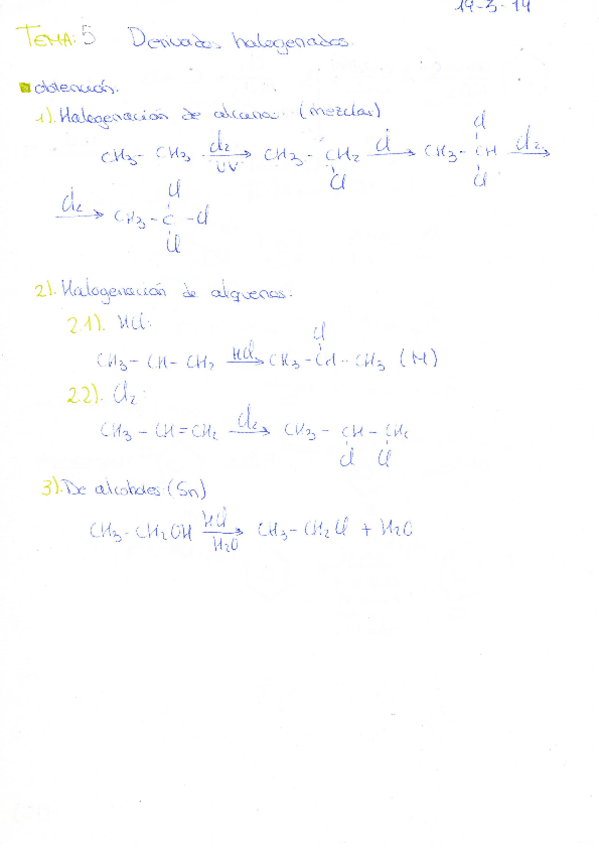 14-3-14
TEMA: 5 Derivados halogenados.
obtención.
1). Halogenación de alcanos: (mezclas)
Cl
CH3- CH3 Cl2→ UV CH3- CH2 Cl→ CH3- CH Cl2→
Cl Cl
Cl2→ CH3- C -Cl
Cl
Cl
2). Halogenación de alquenos:
2.1). HCl:
Cl
CH3- CH- CH2 HCl→ CH3- CH- CH3 (M)
2.2). Cl2:
CH3 - CH = CH2 Cl2→ CH3 - CH - CH2
Cl Cl
3). De alcoholes: (Sn)
CH3- CH2OH HCl→ H2O CH3- CH2Cl + H2O